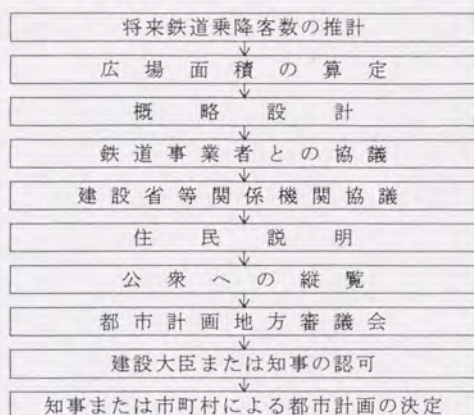 将来鉄道乗降客数の推計
広場面積の算定
概略設計
鉄道事業者との協議
建設省等関係機関協議
住民説明
公衆への縦覧
都市計画地方審議会
建設大臣または知事の認可
知事または市町村による都市計画の決定